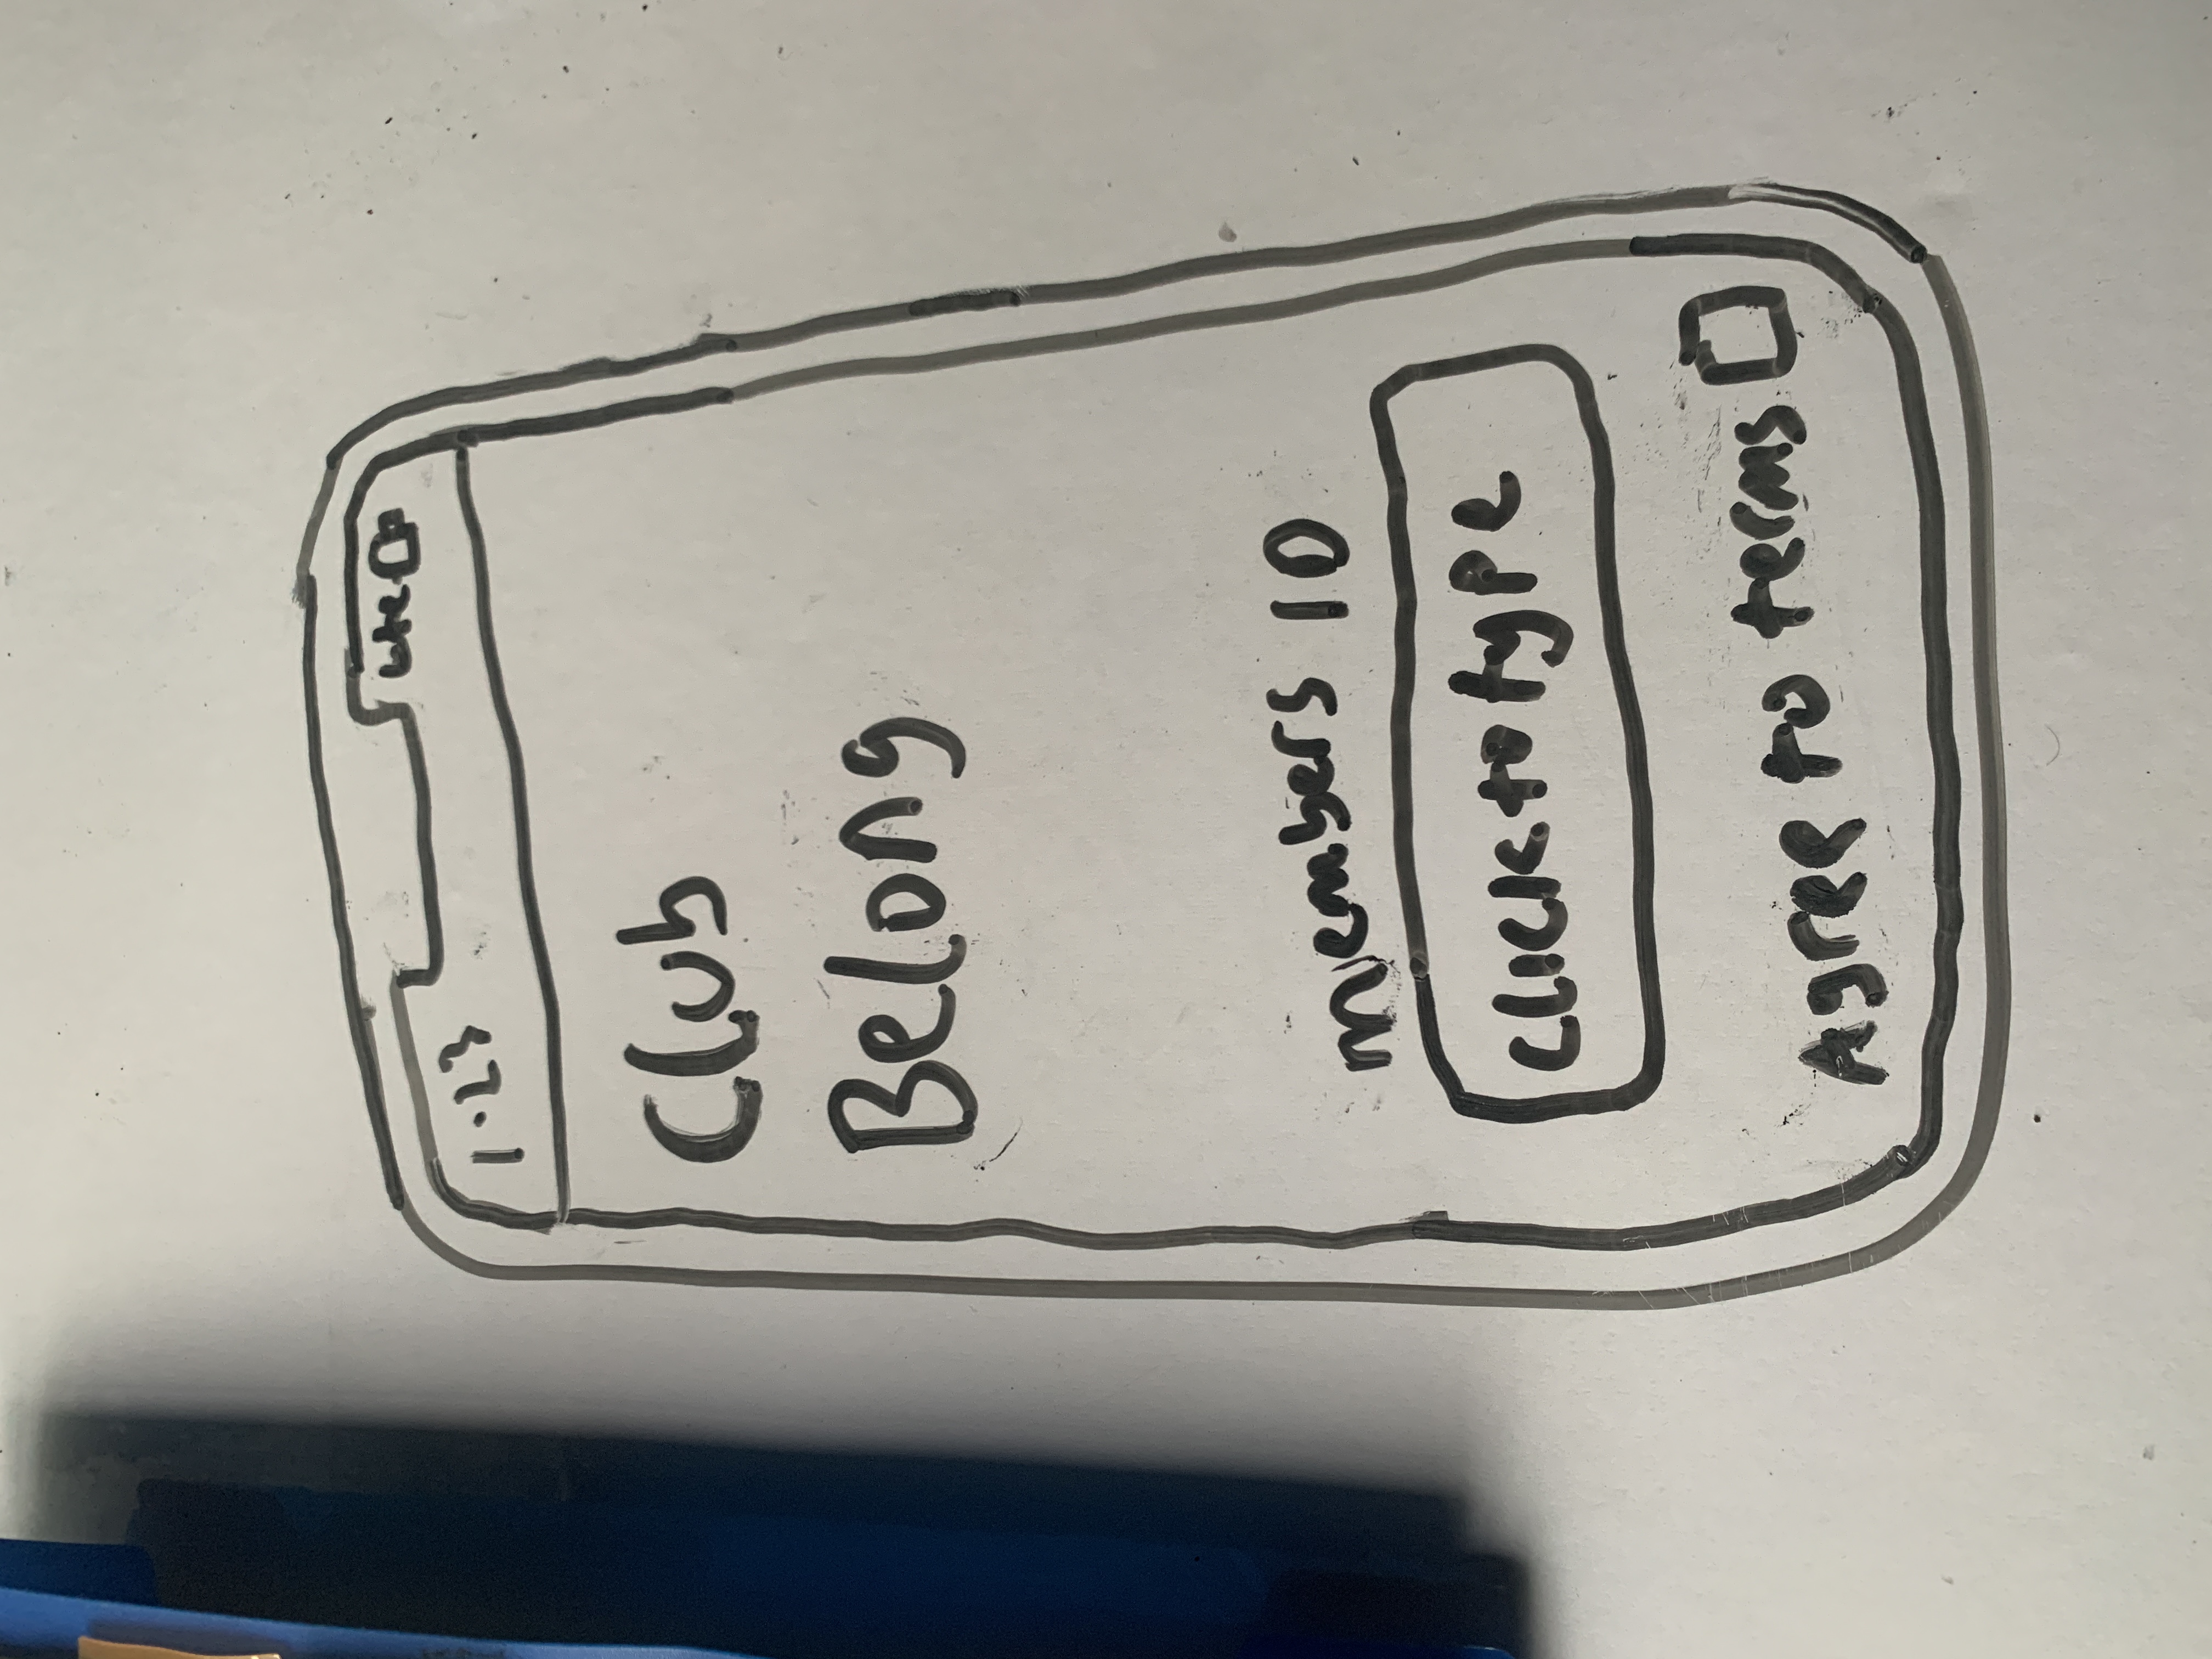 1·23 Lte
Club
Belong
members ID
click to type
Agree to terms